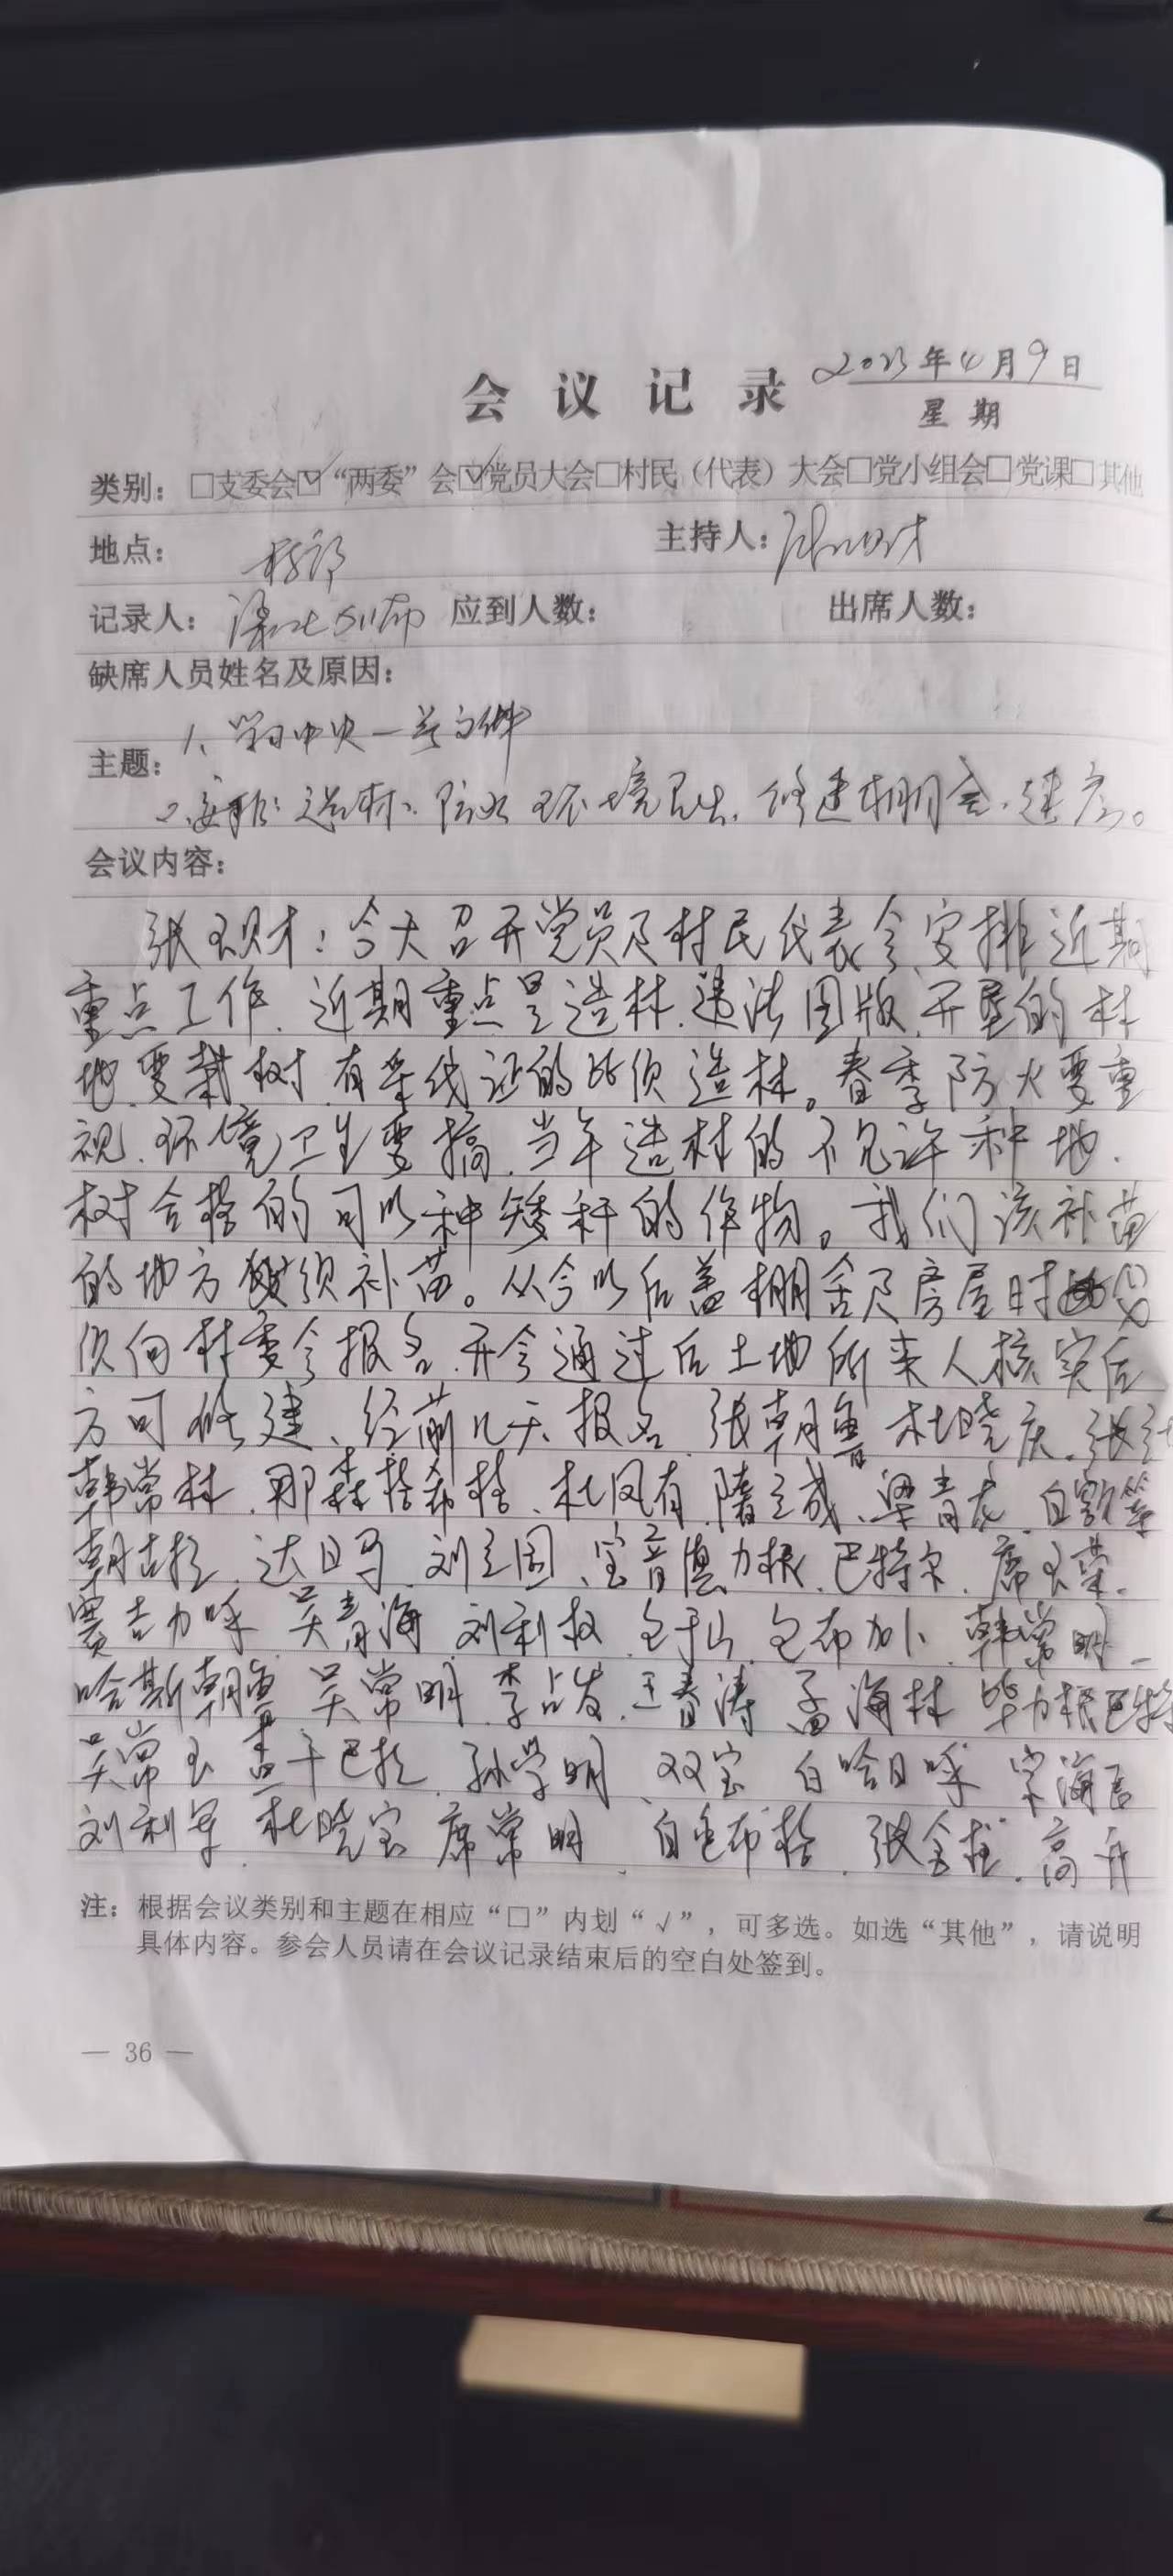 会议记录 2023年4月9日
星期
类别：□支委会☑“两委”会☑党员大会□村民（代表）大会□党小组会□党课□其他
地点： 村部 主持人：
记录人： 应到人数： 出席人数：
缺席人员姓名及原因：
1、学习中央一号文件
主题：
2、安排：造林、防火、环境卫生、修建棚舍、建房。
会议内容：
张玉财：今天召开党员及村民代表会，安排近期
重点工作、近期重点是造林、违法图版、开垦的林
地要栽树、有采伐证的必须造林。春季防火要重
视、环境卫生要搞、当年造林的不允许种地、
树合格的可以种矮秆的作物。我们该补苗
的地方必须补苗。从今以后盖棚舍及房屋时必
须向村委会报名、开会通过后土地所来人核实后
方可修建、经前几天报名、张朝鲁 杜晓庆、张
韩常林、那森格希格、杜凤有、隋立成、梁青龙、白
朝古拉、达日玛、刘立国、宝音德力根、巴特尔、席玉荣、
赛吉力呼 吴青海 刘利权、包布加卜、韩常明、
哈斯朝鲁 吴常明 李占发、王春涛 孟海林 毕力根巴特
吴常玉 干巴拉、孙学明、双宝 白哈日呼 宋海
刘利军、杜晓宝 席常明、白色布格、张金柱、高升
注：根据会议类别和主题在相应“□”内划“√”，可多选。如选“其他”，请说明
具体内容。参会人员请在会议记录结束后的空白处签到。
— 36 —